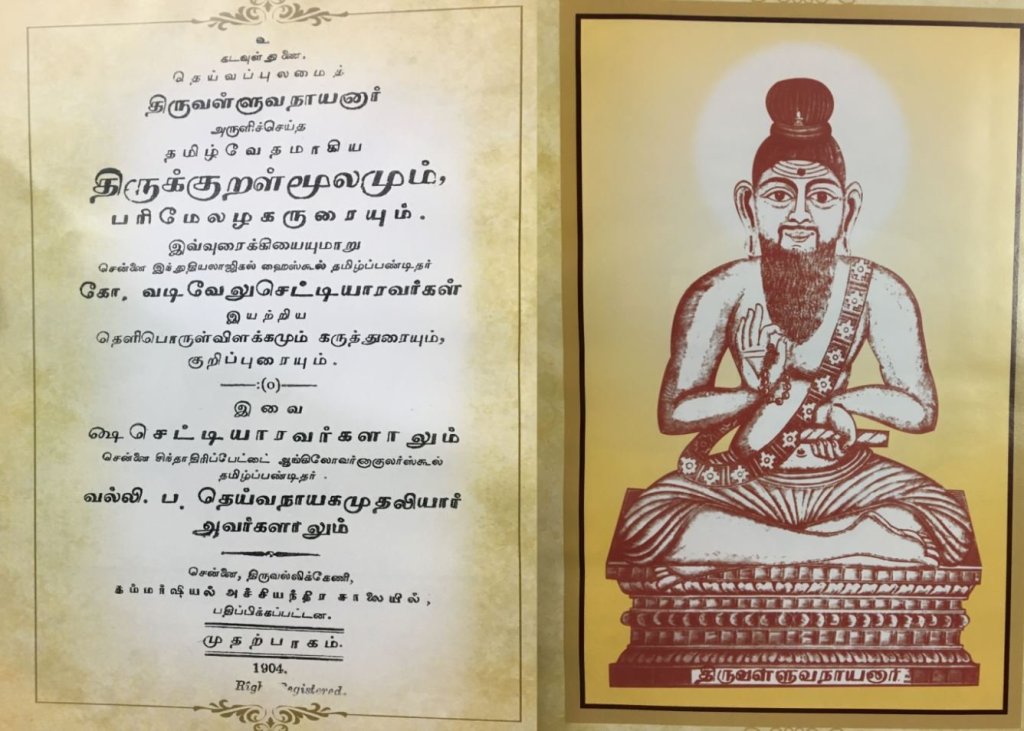 உ
கடவுள் துணை.
தெய்வப்புலமைத்
திருவள்ளுவநாயனார்
அருளிச்செய்த
தமிழ்வேதமாகிய
திருக்குறள்மூலமும்,
பரிமேலழகருரையும்.
இவ்வுரைக்கியையுமாறு
சென்னை இந்துதியலாஜிகல் ஹைஸ்கூல் தமிழ்ப்பண்டிதர்
கோ. வடிவேலுசெட்டியாரவர்கள்
இயற்றிய
தெளிபொருள்விளக்கமும் கருத்துரையும்,
குறிப்புரையும்.
:(o)
இவை
ஷை செட்டியாரவர்களாலும்
சென்னை சிந்தாதிரிப்பேட்டை ஆங்கிலோவர்னாகுலர்ஸ்கூல்
தமிழ்ப்பண்டிதர்
வல்லி. ப. தெய்வநாயகமுதலியார்
அவர்களாலும்
சென்னை, திருவல்லிக்கேணி,
கம்மர்ஷியல் அச்சியந்திர சாலையில்,
பதிப்பிக்கப்பட்டன.
முதற்பாகம்.
1904.
Registered.
திருவள்ளுவநாயனார்